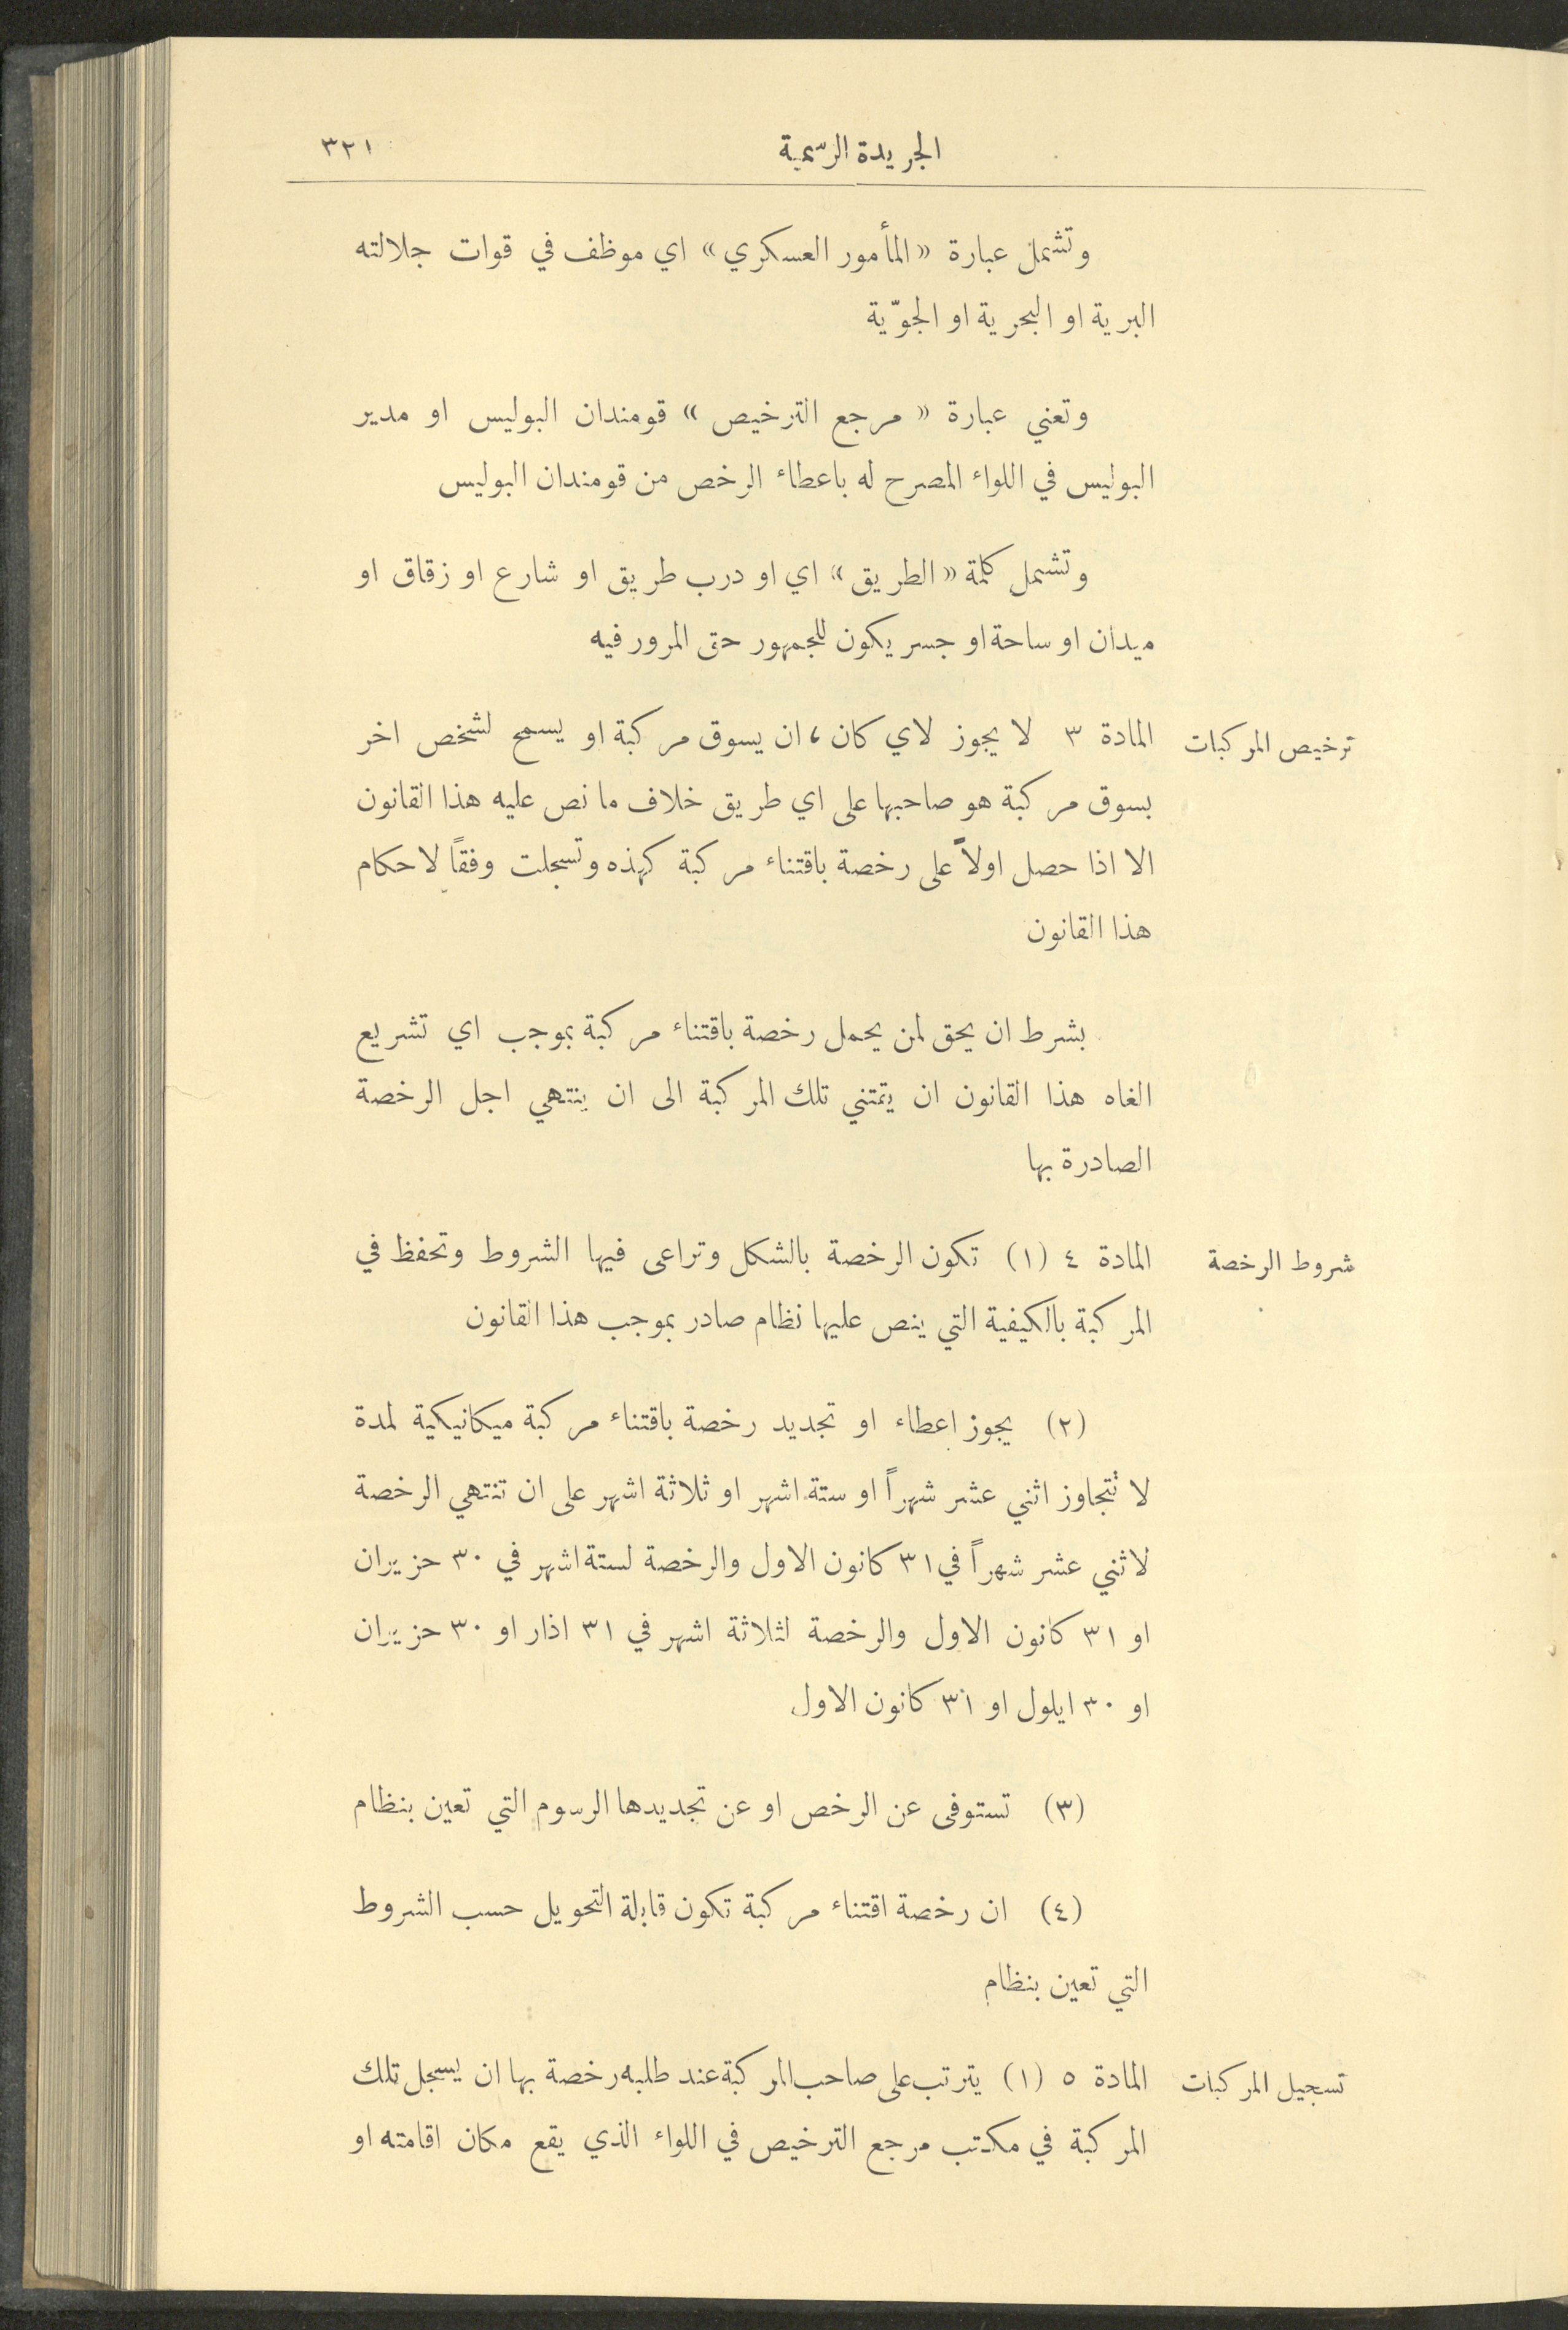 الجريدة الرسمية
٣٢١
وتشمل عبارة «المأمور العسكري» اي موظف في قوات جلالته
البرية او البحرية او الجوّية
وتعني عبارة « مرجع الترخيص » قومندان البوليس او مدير
البوليس في اللواء المصرح له باعطاء الرخص من قومندان البوليس
وتشمل كلمة «الطريق» اي او درب طريق او شارع او زقاق او
ميدان او ساحة او جسر يكون للجمهور حق المرور فيه
ترخيص المركبات
المادة ٣ لا يجوز لاي كان، ان يسوق مركبة او يسمح لشخص اخر
بسوق مركبة هو صاحبها على اي طريق خلاف ما نص عليه هذا القانون
الا اذا حصل اولاً على رخصة باقتناء مركبة كهذه وتسجلت وفقاً لاحكام
هذا القانون
بشرط ان يحق لمن يحمل رخصة باقتناء مركبة بموجب اي تشريع
الغاه هذا القانون ان يقتني تلك المركبة الى ان ينتهي اجل الرخصة
الصادرة بها
شروط الرخصة
المادة ٤ (١) تكون الرخصة بالشكل وتراعى فيها الشروط وتحفظ في
المركبة بالكيفية التي ينص عليها نظام صادر بموجب هذا القانون
(٢) يجوز اعطاء او تجديد رخصة باقتناء مركبة ميكانيكية لمدة
لا تتجاوز اثني عشر شهراً او ستة اشهر او ثلاثة اشهر على ان تنتهي الرخصة
لاثني عشر شهراً في ٣١ كانون الاول والرخصة لستة اشهر في ٣٠ حزيران
او ٣١ كانون الاول والرخصة لثلاثة اشهر في ٣١ اذار او ٣٠ حزيران
او ٣٠ ايلول او ٣١ كانون الاول
(٣) تستوفى عن الرخص او عن تجديدها الرسوم التي تعين بنظام
(٤) ان رخصة اقتناء مركبة تكون قابلة التحويل حسب الشروط
التي تعين بنظام
تسجيل المركبات
المادة ٥ (١) يترتب على صاحب المركبة عند طلبه رخصة بها ان يسجل تلك
المركبة في مكتب مرجع الترخيص في اللواء الذي يقع مكان اقامته او